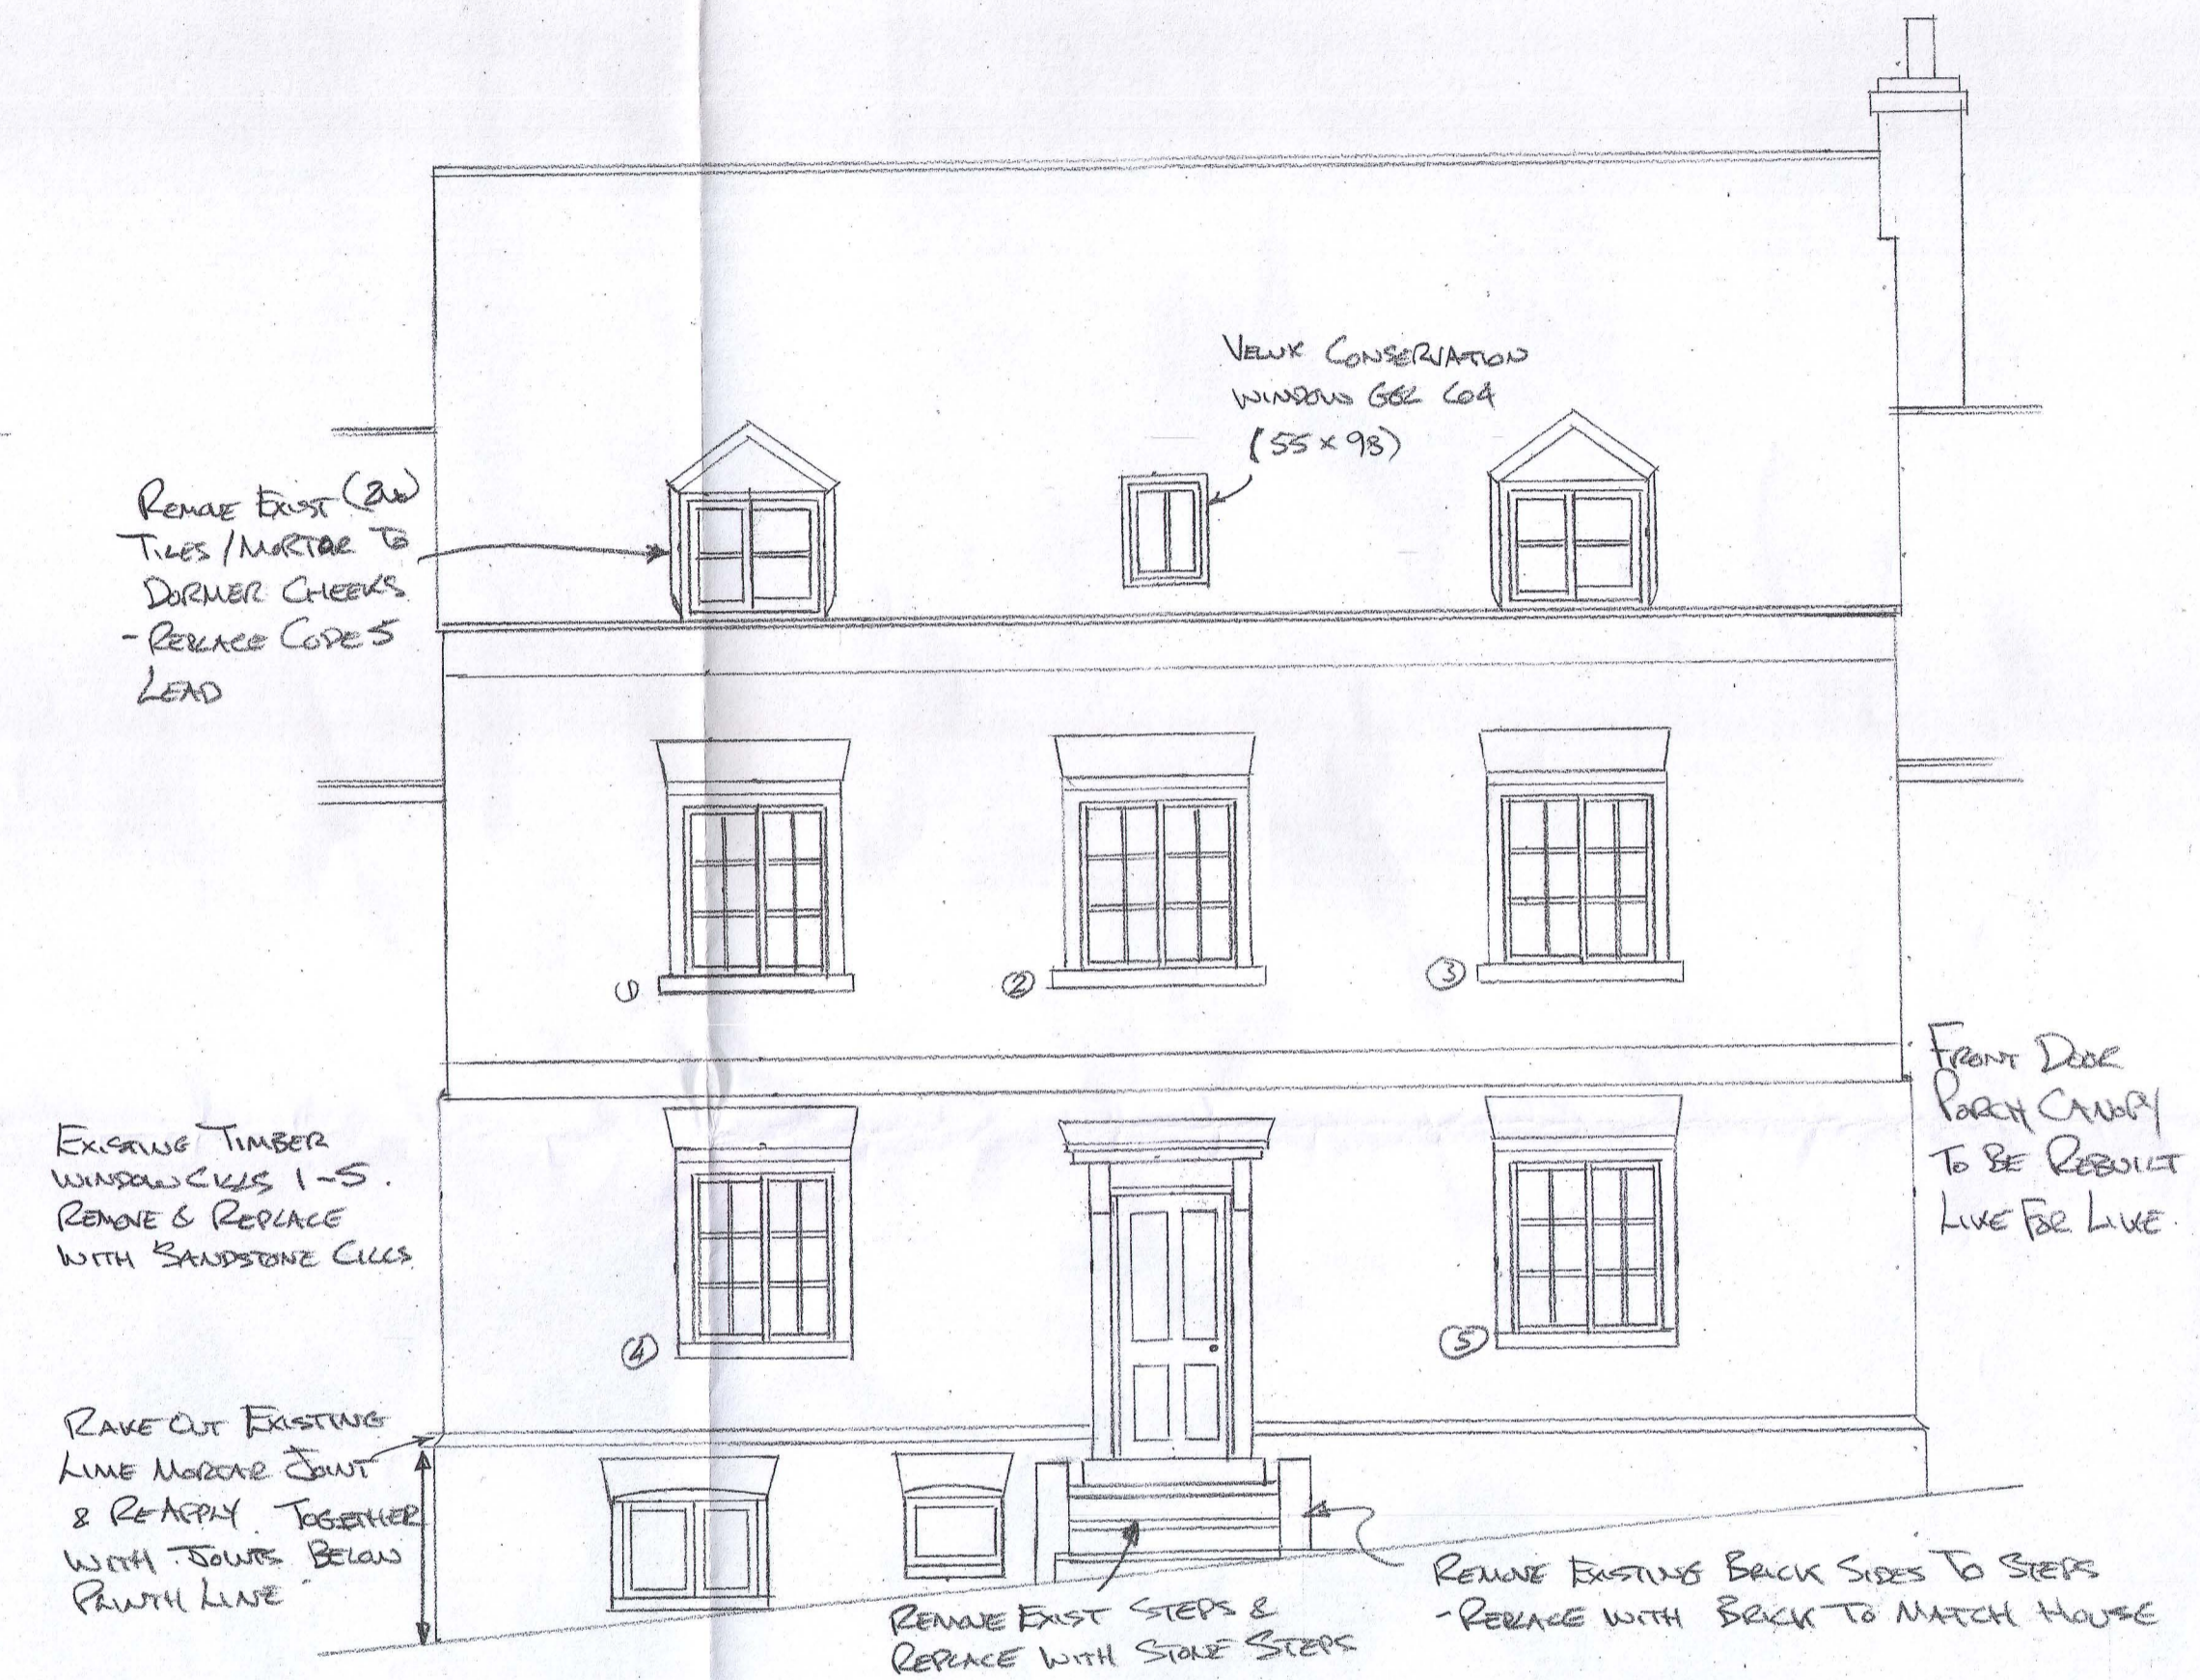 VELUX CONSERVATION
WINDOW GGL C04
(55 x 98)
REMOVE EXIST (2No)
TILES / MORTAR TO
DORMER CHEEKS
- REPLACE CODE 5
LEAD
1
2
3
FRONT DOOR
PORCH CANOPY
TO BE REBUILT
LIKE FOR LIKE.
EXISTING TIMBER
WINDOW CILLS 1-5.
REMOVE & REPLACE
WITH SANDSTONE CILLS
4
5
RAKE OUT EXISTING
LIME MORTAR JOINT
& REAPPLY. TOGETHER
WITH JOINTS BELOW
PLINTH LINE
REMOVE EXIST STEPS &
REPLACE WITH STONE STEPS
REMOVE EXISTING BRICK SIDES TO STEPS
- REPLACE WITH BRICK TO MATCH HOUSE